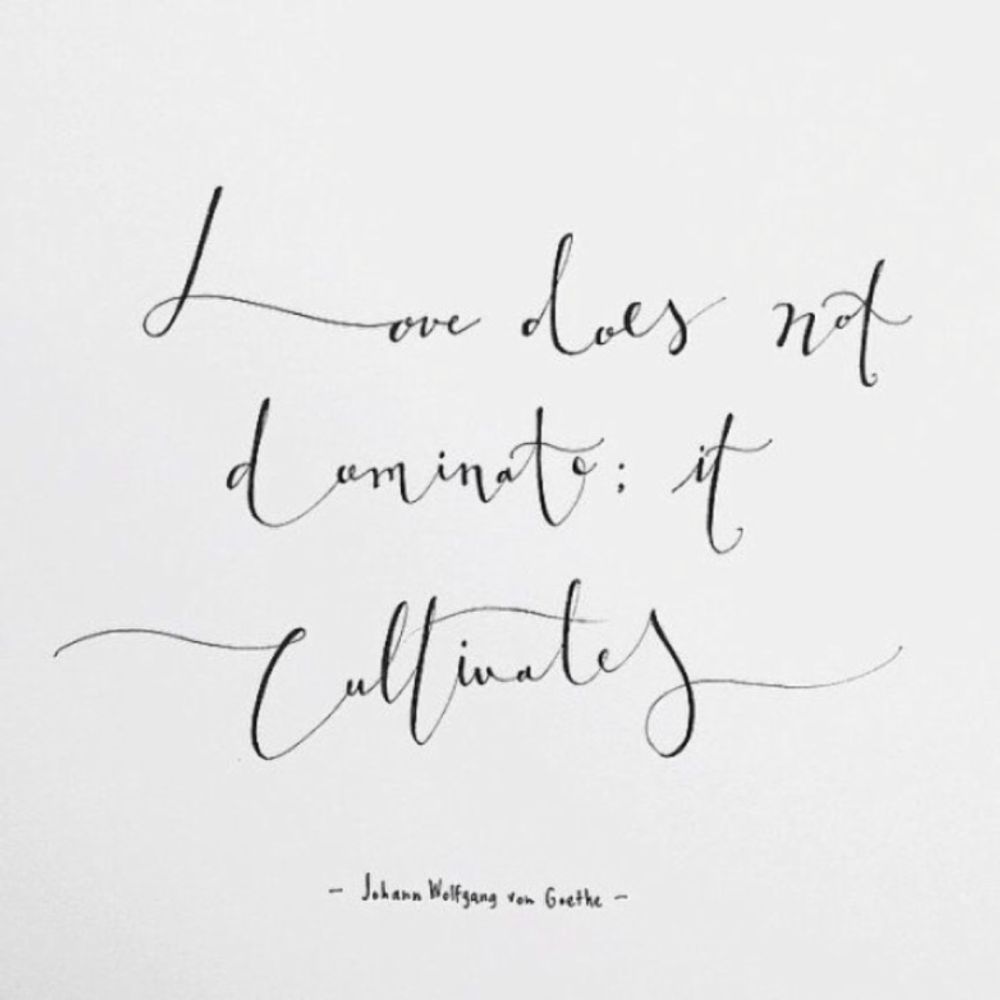 Love does not
dominate; it
Cultivates
- Johann Wolfgang von Goethe -